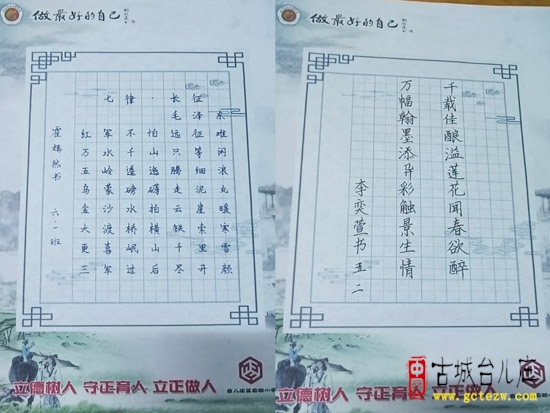 做最好的自己
七律·长征
毛泽东
红军不怕远征难
万水千山只等闲
五岭逶迤腾细浪
乌蒙磅礴走泥丸
金沙水拍云崖暖
大渡桥横铁索寒
更喜岷山千里雪
三军过后尽开颜
霍嫣然书 六·一班
立德树人 守正育人 立正做人
做最好的自己
千载佳酿溢莲花闻春欲醉
万幅翰墨添异彩触景生情
李奕萱书五二
立德树人 守正育人 立正做人
古城台儿庄
www.gctezw.com